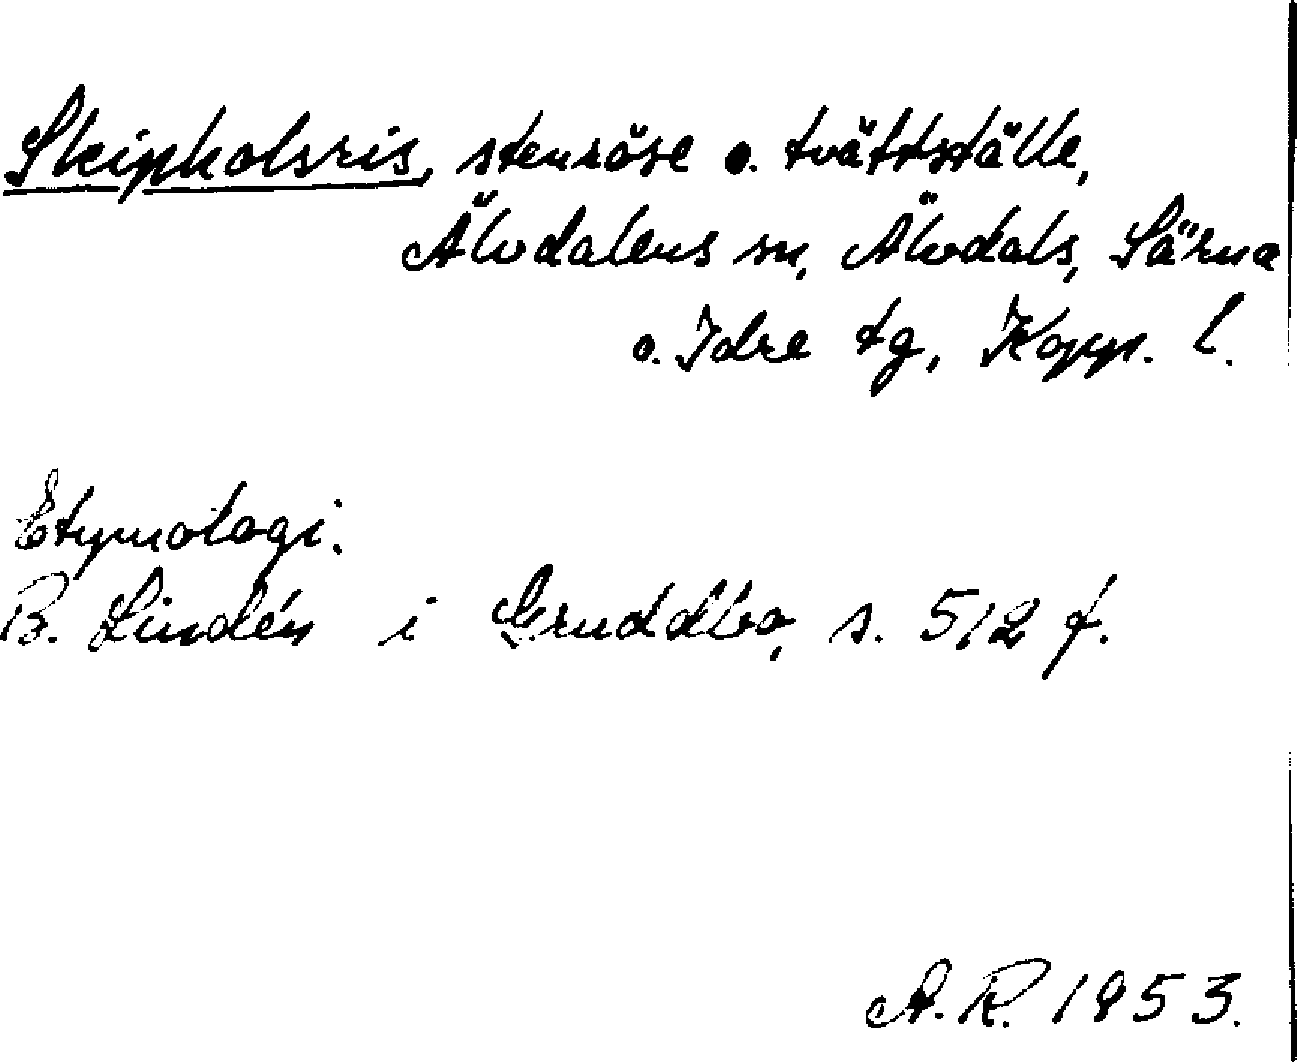 Skipholsris, stenröse o. tvättställe,
Älvdalens sn, Älvdals, Särna
o. Idre tg, Kopp. l.
Etymologi.
B. Lindén i Gruddbo, s. 512 f.
A. R. 1953.